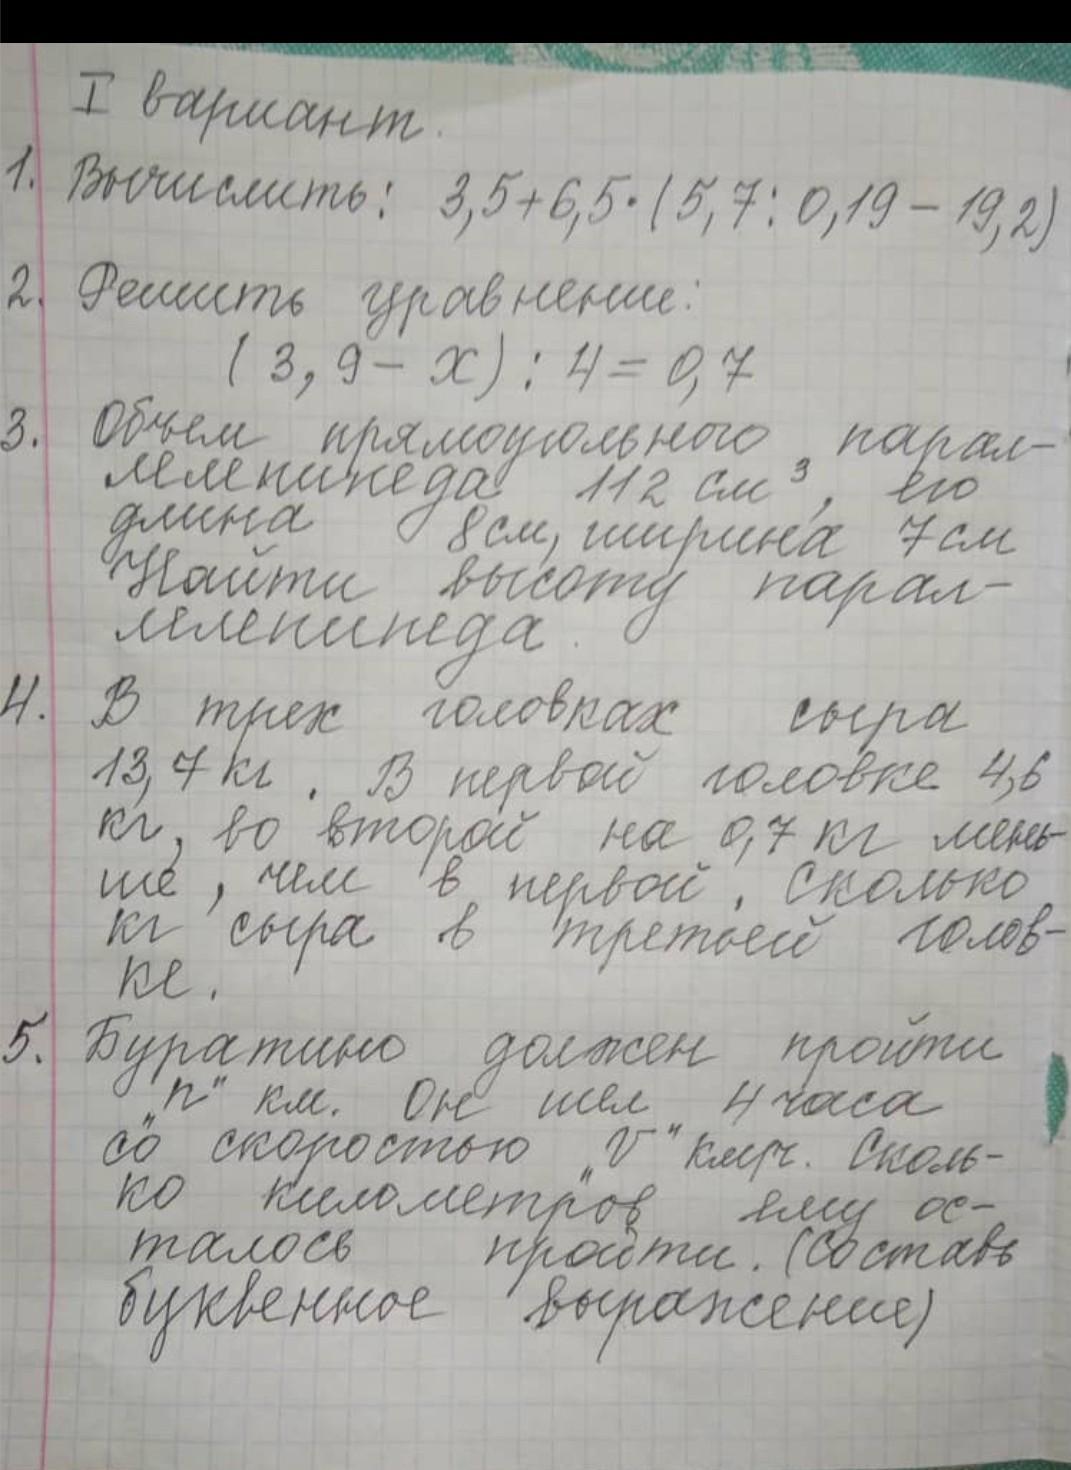 I вариант.
1. Вычислить: 3,5+6,5·(5,7:0,19-19,2)
2. Решить уравнение:
(3,9-x):4=0,7
3. Объем прямоугольного парал-
лелепипеда 112 см³, его
длина 8см, ширина 7см
Найти высоту парал-
лелепипеда.
4. В трех головках сыра
13,7кг. В первой головке 4,6
кг, во второй на 0,7кг мень-
ше, чем в первой. Сколько
кг сыра в третьей голов-
ке.
5. Буратино должен пройти
„n" км. Он шел 4 часа
со скоростью „V" км/ч. Сколь-
ко километров ему ос-
талось пройти. (Составь
буквенное выражение)